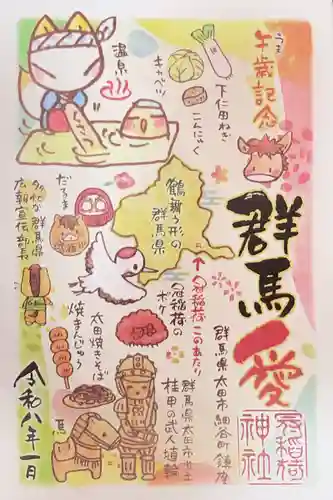 午歳記念
うま
下仁田ねぎ
キャベツ
こんにゃく
温泉
くさつ
群馬愛
鶴舞う形の
群馬県
だるま
多比な 群馬県
広報宣伝部長
↑冠稲荷このあたり
冠稲荷の
ボケ
群馬県太田市細谷町鎮座
太田焼きそば
焼きまんじゅう
群馬県太田市出土
挂甲の武人埴輪
馬
冠稲荷
神社
令和八年一月